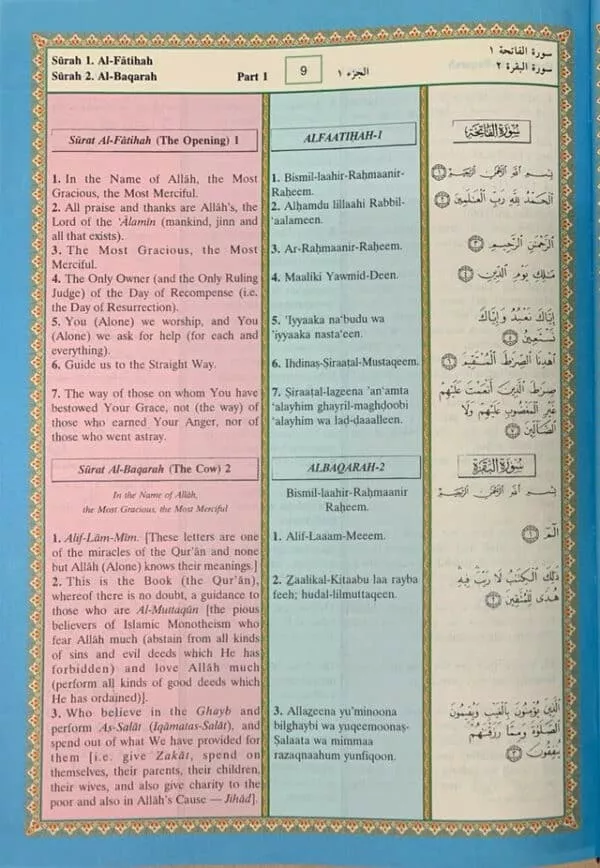 Sûrah 1. Al-Fâtihah
Sûrah 2. Al-Baqarah
Part 1
9
الجزء ١
سورة الفاتحة ١
سورة البقرة ٢
Sûrat Al-Fâtihah (The Opening) 1
1. In the Name of Allâh, the Most
Gracious, the Most Merciful.
2. All praise and thanks are Allâh's, the
Lord of the 'Âlamîn (mankind, jinn and
all that exists).
3. The Most Gracious, the Most
Merciful.
4. The Only Owner (and the Only Ruling
Judge) of the Day of Recompense (i.e.
the Day of Resurrection).
5. You (Alone) we worship, and You
(Alone) we ask for help (for each and
everything).
6. Guide us to the Straight Way.
7. The way of those on whom You have
bestowed Your Grace, not (the way) of
those who earned Your Anger, nor of
those who went astray.
Sûrat Al-Baqarah (The Cow) 2
In the Name of Allâh,
the Most Gracious, the Most Merciful
1. Alif-Lâm-Mîm. [These letters are one
of the miracles of the Qur'ân and none
but Allâh (Alone) knows their meanings.]
2. This is the Book (the Qur'ân),
whereof there is no doubt, a guidance to
those who are Al-Muttaqûn [the pious
believers of Islamic Monotheism who
fear Allâh much (abstain from all kinds
of sins and evil deeds which He has
forbidden) and love Allâh much
(perform all kinds of good deeds which
He has ordained)].
3. Who believe in the Ghayb and
perform As-Salât (Iqâmatas-Salât), and
spend out of what We have provided for
them [i.e. give Zakât, spend on
themselves, their parents, their children,
their wives, and also give charity to the
poor and also in Allâh's Cause — Jihâd].
ALFAATIḤAH-1
1. Bismil-laahir-Raḥmaanir-
Raḥeem.
2. Alḥamdu lillaahi Rabbil-
'aalameen.
3. Ar-Raḥmaanir-Raḥeem.
4. Maaliki Yawmid-Deen.
5. 'Iyyaaka na'budu wa
'iyyaaka nasta'een.
6. Ihdinaṣ-Ṣiraatal-Mustaqeem.
7. Ṣiraaṭal-lazeena 'an'amta
'alayhim ghayril-maghḍoobi
'alayhim wa laḍ-ḍaaalleen.
ALBAQARAH-2
Bismil-laahir-Raḥmaanir
Raḥeem.
1. Alif-Laaam-Meeem.
2. Ẕaalikal-Kitaabu laa rayba
feeh; hudal-lilmuttaqeen.
3. Allaẕeena yu'minoona
bilghaybi wa yuqeemoonaṣ-
Ṣalaata wa mimmaa
razaqnaahum yunfiqoon.
سُورَةُ الفَاتِحَةِ
بِسْمِ اللَّهِ الرَّحْمَٰنِ الرَّحِيمِ ١
الْحَمْدُ لِلَّهِ رَبِّ الْعَالَمِينَ ٢
الرَّحْمَٰنِ الرَّحِيمِ ٣
مَالِكِ يَوْمِ الدِّينِ ٤
إِيَّاكَ نَعْبُدُ وَإِيَّاكَ
نَسْتَعِينُ ٥
اهْدِنَا الصِّرَاطَ الْمُسْتَقِيمَ ٦
صِرَاطَ الَّذِينَ أَنْعَمْتَ عَلَيْهِمْ
غَيْرِ الْمَغْضُوبِ عَلَيْهِمْ وَلَا
الضَّالِّينَ ٧
سُورَةُ البَقَرَةِ
بِسْمِ اللَّهِ الرَّحْمَٰنِ الرَّحِيمِ
الٓمٓ ١
ذَٰلِكَ الْكِتَابُ لَا رَيْبَ فِيهِ
هُدًى لِلْمُتَّقِينَ ٢
الَّذِينَ يُؤْمِنُونَ بِالْغَيْبِ وَيُقِيمُونَ
الصَّلَوٰةَ وَمِمَّا رَزَقْنَاهُمْ
يُنْفِقُونَ ٣